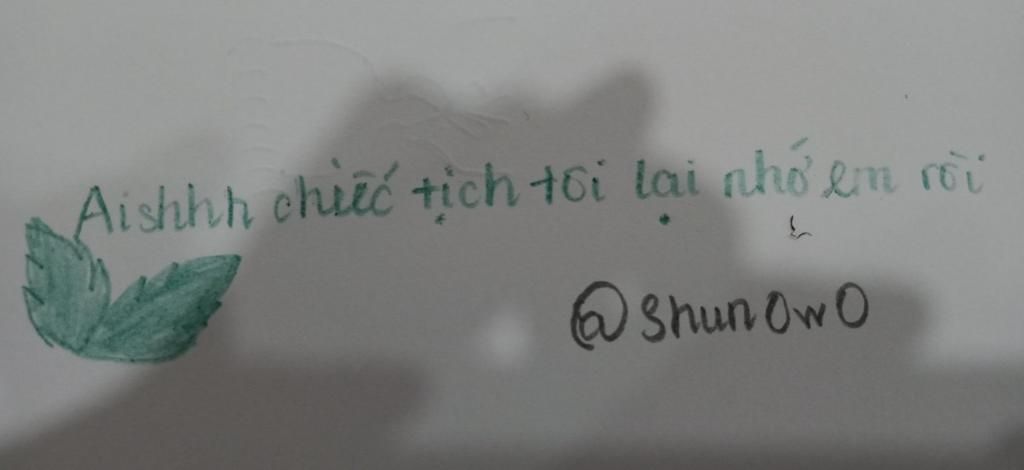 Aishhh chiếc tịch tôi lại nhớ em rồi
@shun0w0